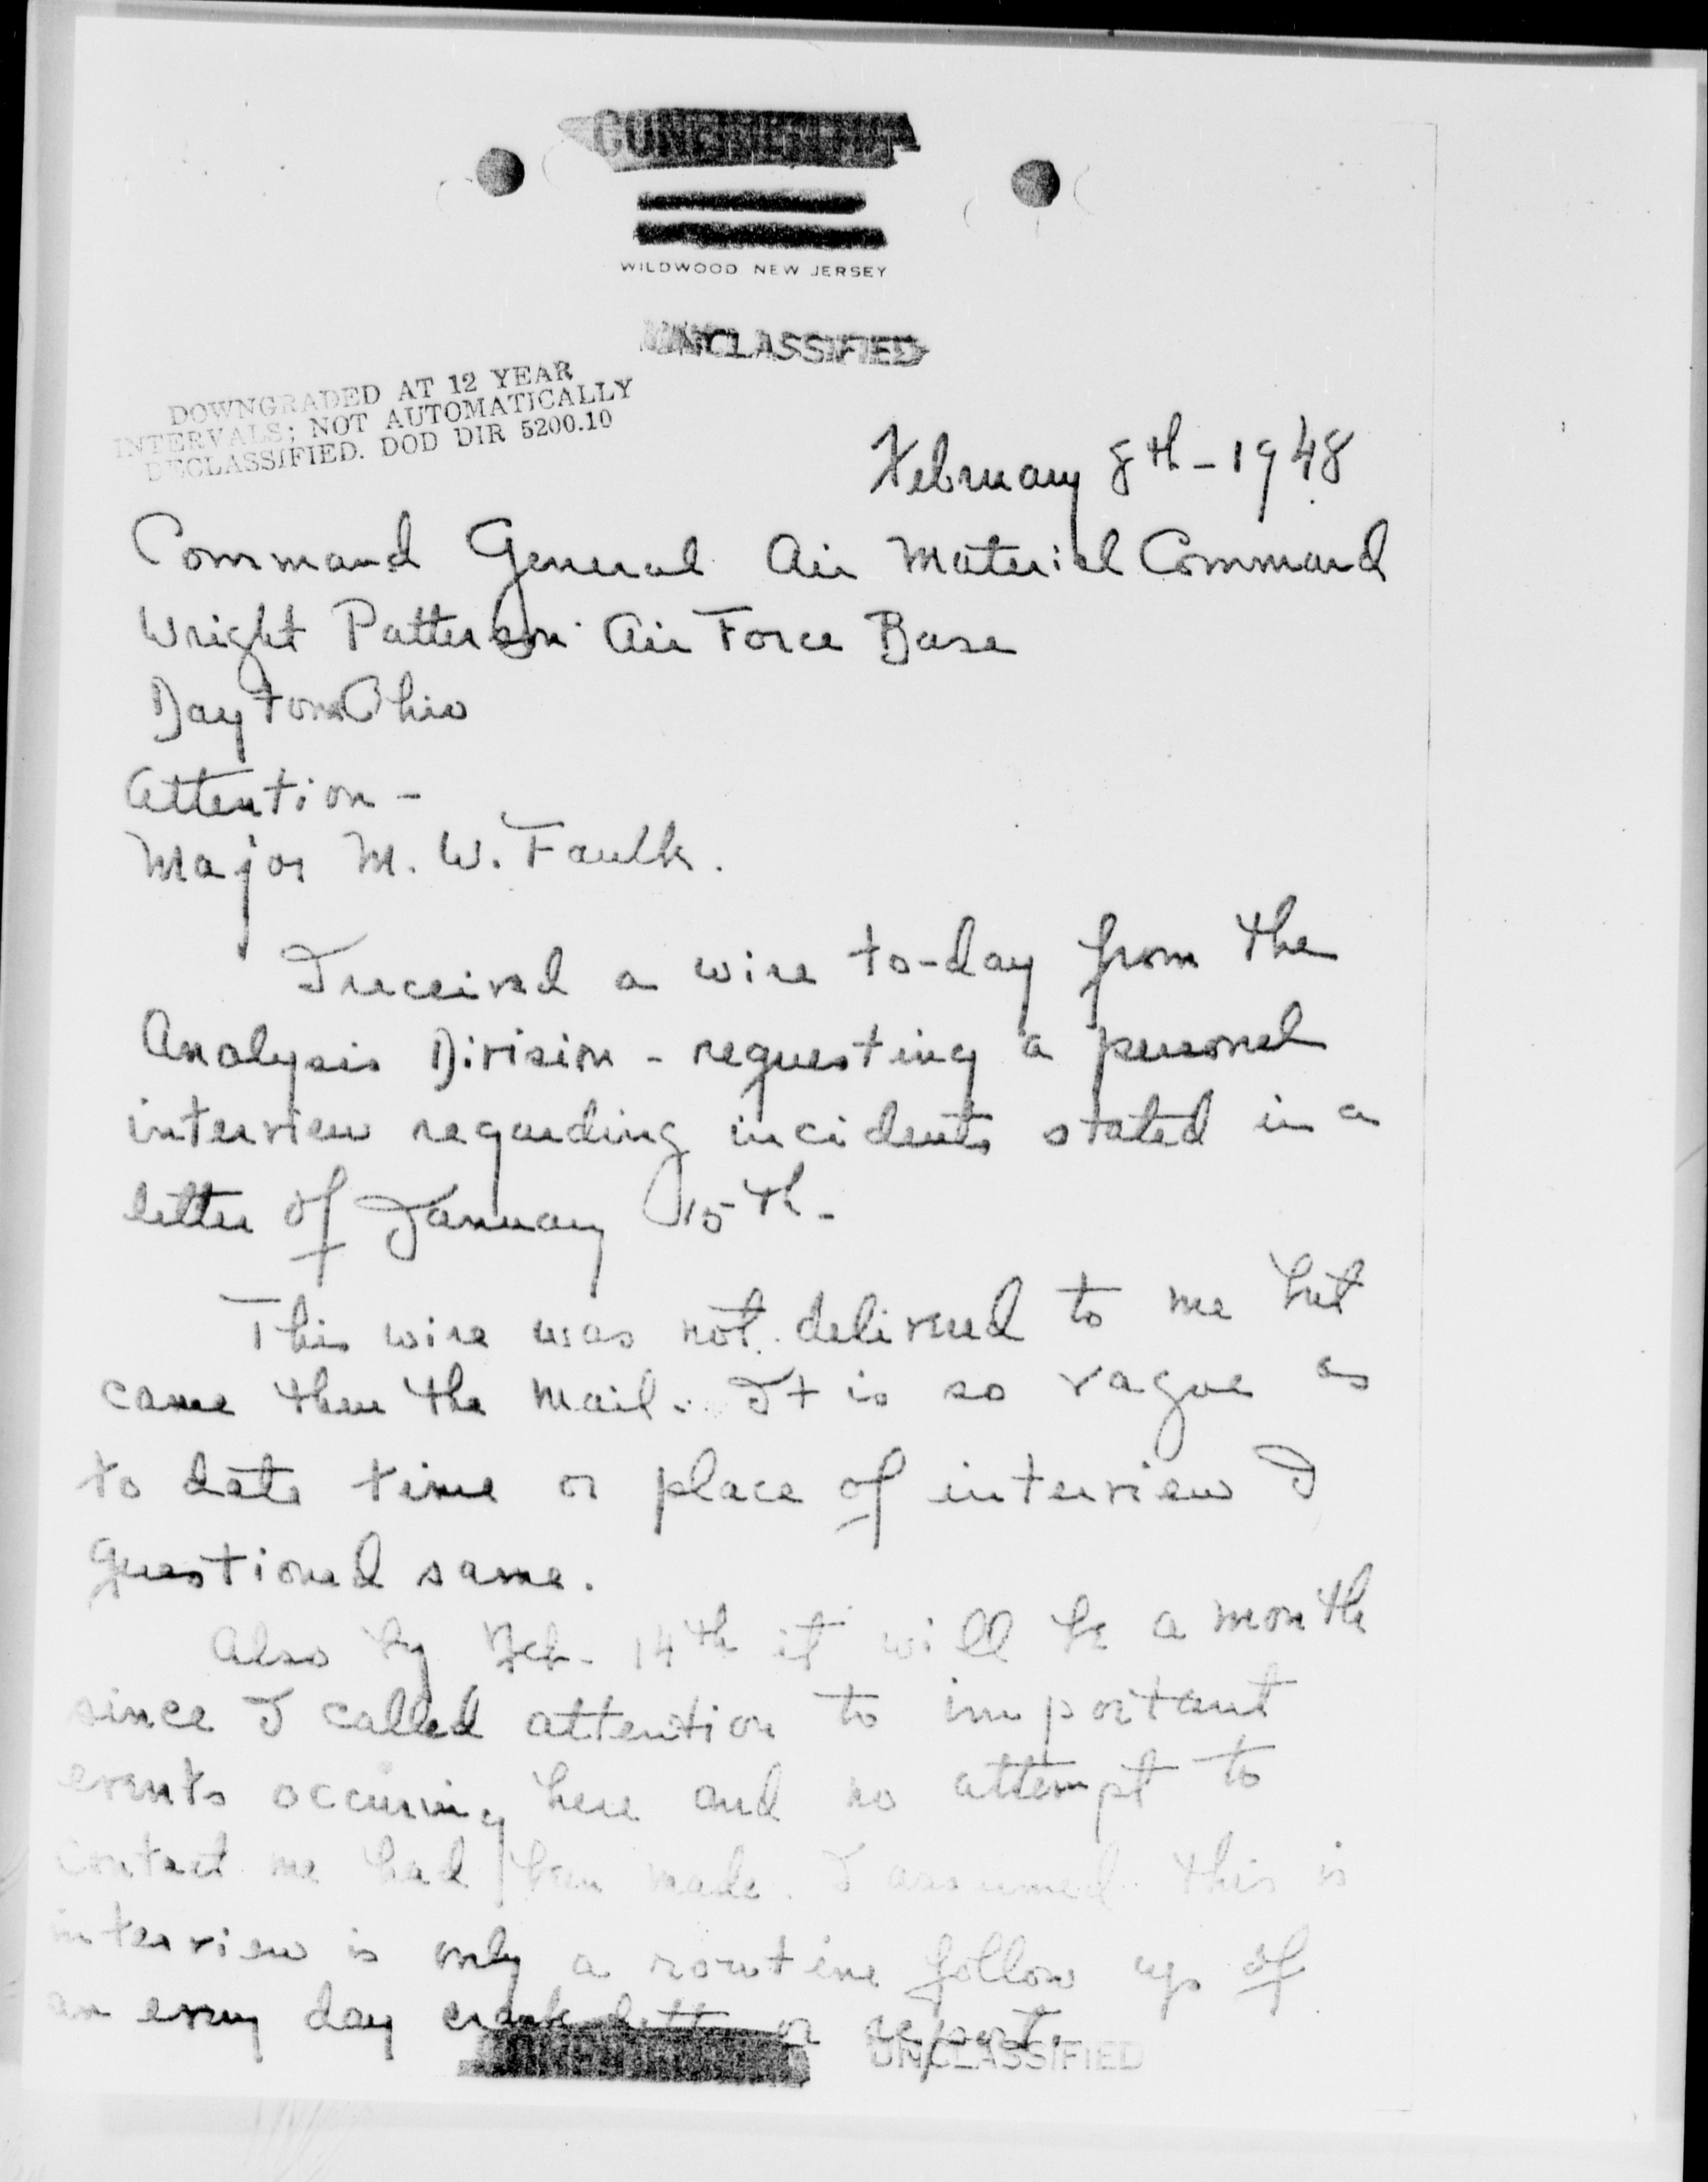 CONFIDENTIAL
WILDWOOD NEW JERSEY
UNCLASSIFIED
DOWNGRADED AT 12 YEAR
INTERVALS; NOT AUTOMATICALLY
DECLASSIFIED. DOD DIR 5200.10
February 8th - 1948
Command General Air Material Command
Wright Patterson Air Force Base
Dayton Ohio
Attention -
Major M. W. Faulk.
I received a wire to-day from the
Analysis Division - requesting a personal
interview regarding incidents stated in a
letter of January 15th -
This wire was not delivered to me but
came thru the mail. It is so vague as
to date time or place of interview I
questioned same.
Also by Feb - 14th it will be a month
since I called attention to important
events occuring here and no attempt to
contact me had been made. I assumed this is
interview is only a routine follow up of
an every day crank letter or report.
UNCLASSIFIED